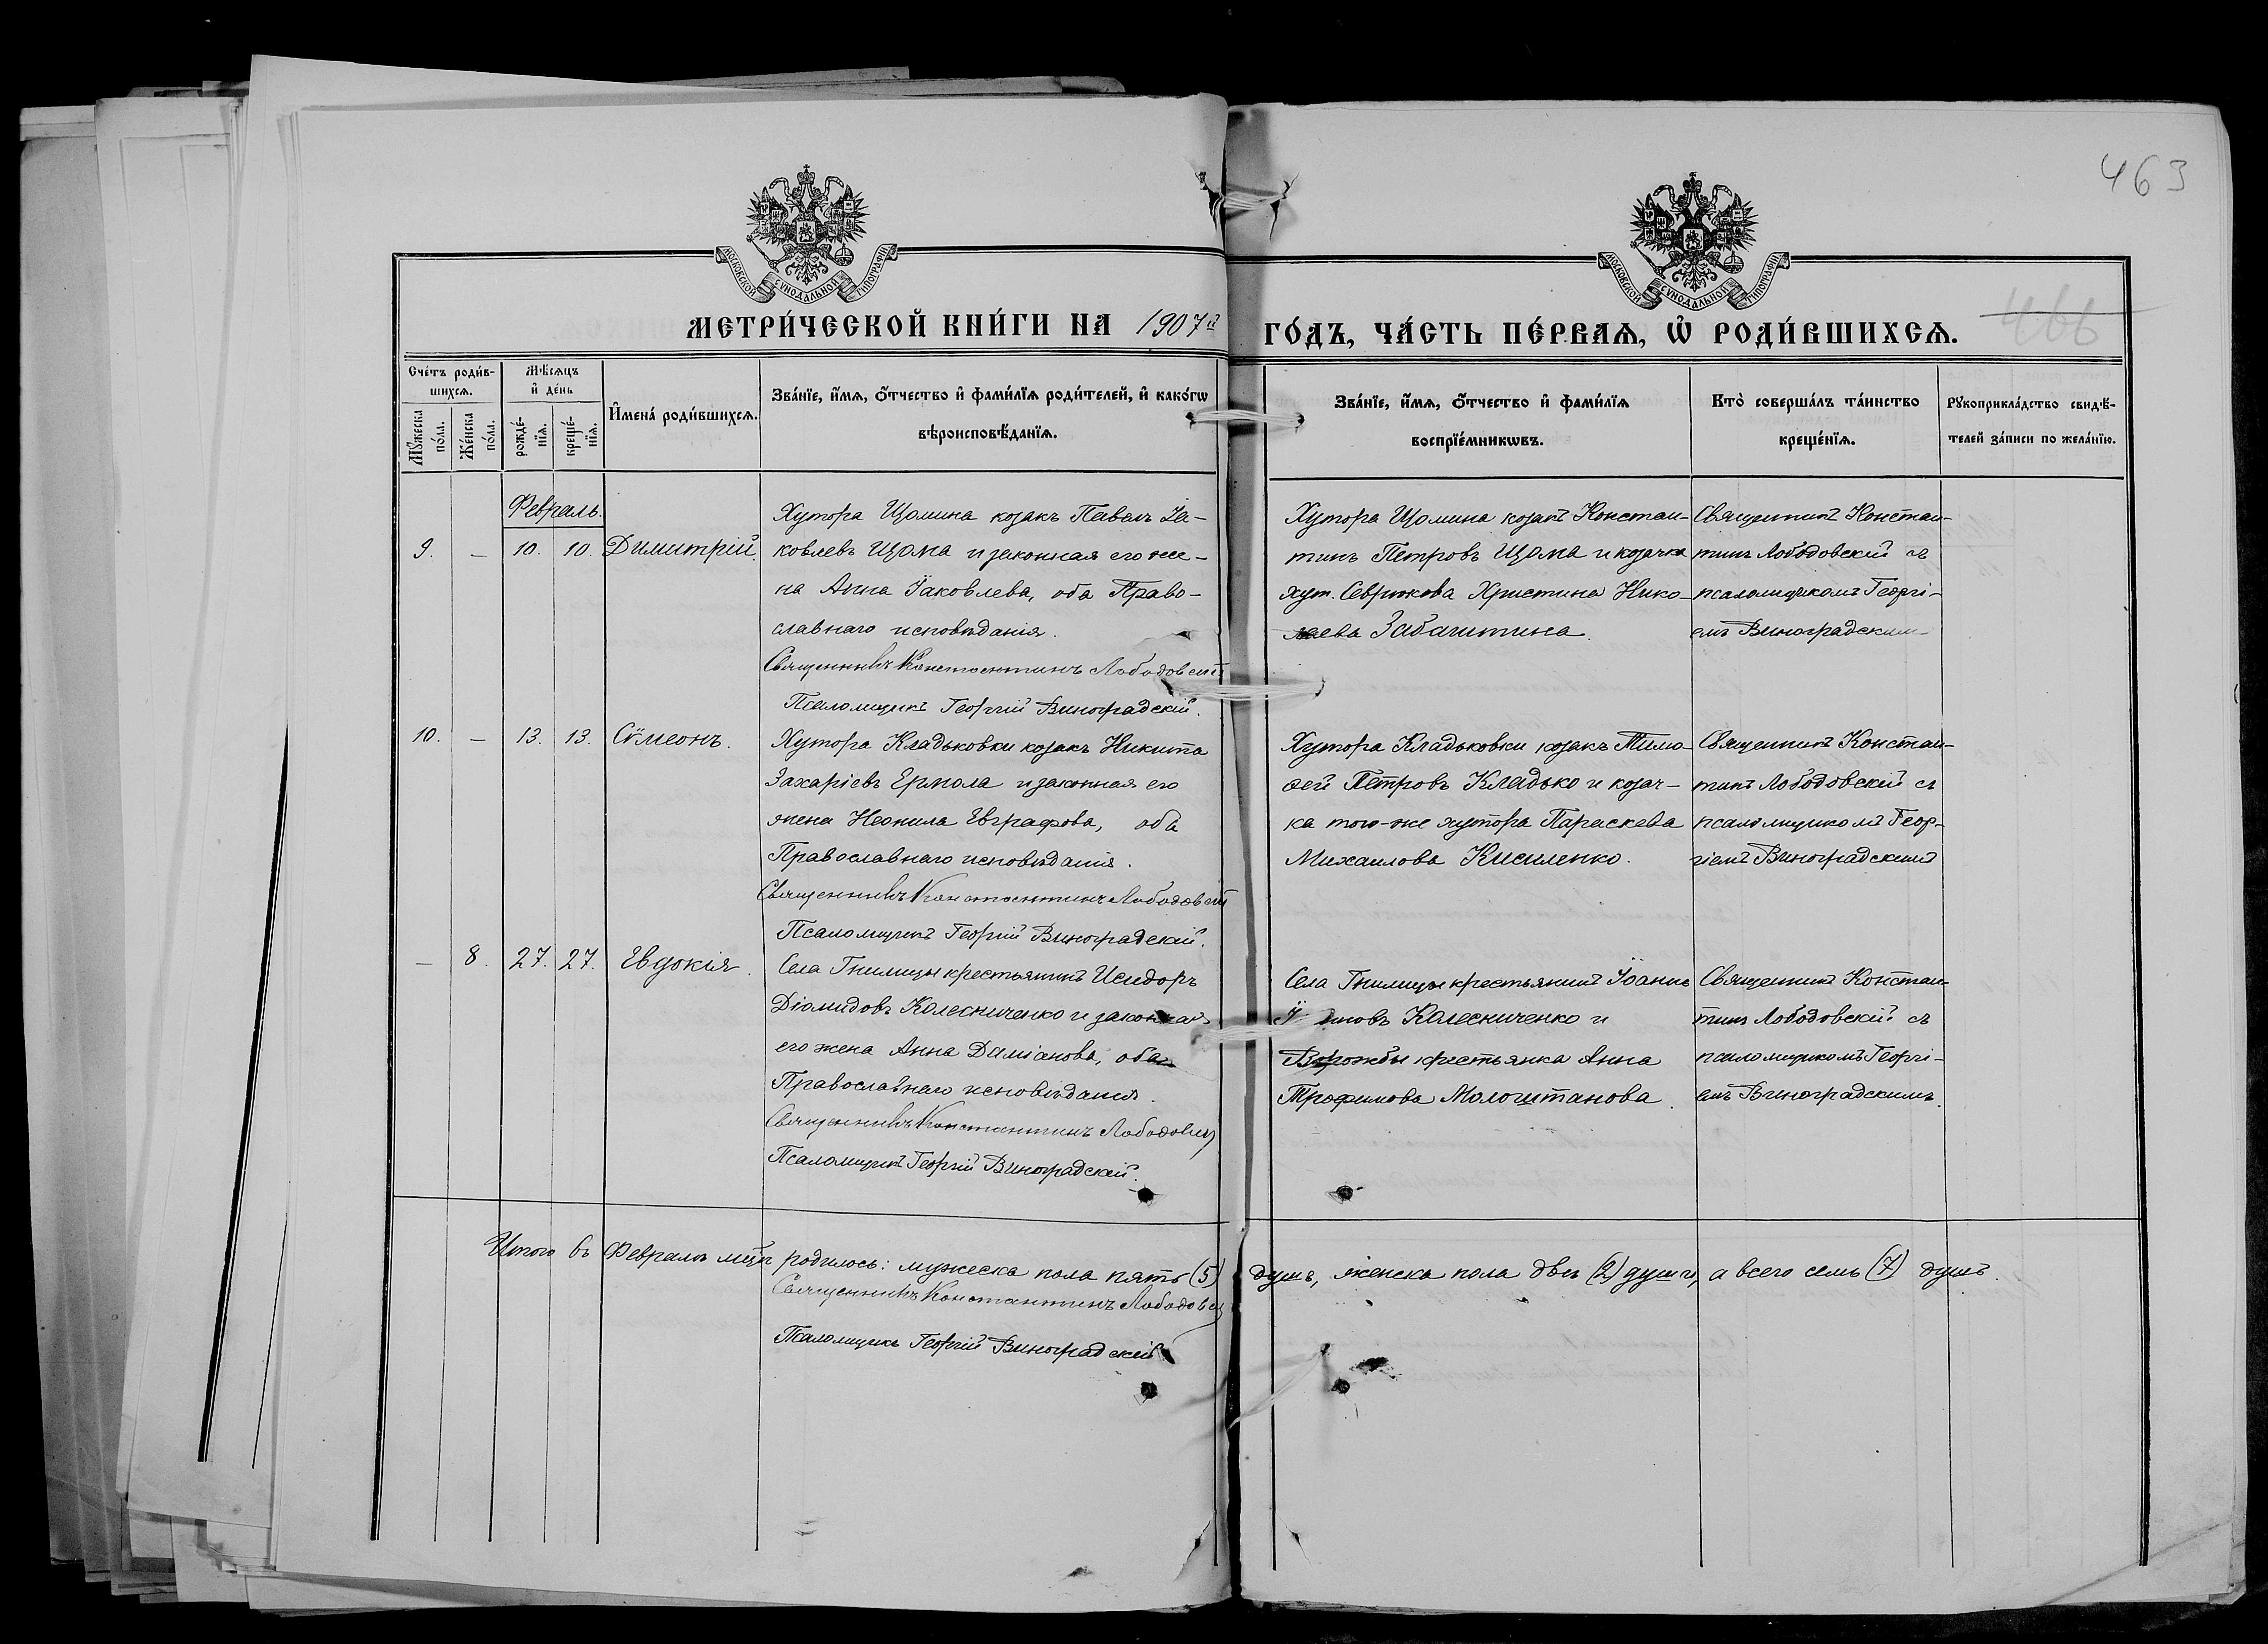 463
МОСКОВСКОЙ СѴНОДАЛЬНОЙ ТИПОГРАФІИ
МОСКОВСКОЙ СѴНОДАЛЬНОЙ ТИПОГРАФІИ
МЕТРИ́ЧЕСКОЙ КНИ́ГИ НА 1907й
ГО́ДЪ, ЧА́СТЬ ПЕ́РВАѦ, Ѡ҆ РОДИ́ВШИХСѦ.
466
Сче́тъ роди́в-
шихсѧ.
Мѣ́сѧцъ
и҆ де́нь
Мꙋ́жеска по́ла.
Же́нска по́ла.
рожде́-нїѧ.
креще́-нїѧ.
И҆мена̀ роди́вшихсѧ.
Зва́нїе, и҆́мѧ, ѻ҆́тчество и҆ фами́лїѧ роди́телей, и҆ како́гѡ
вѣроисповѣ́данїѧ.
Зва́нїе, и҆́мѧ, ѻ҆́тчество и҆ фами́лїѧ
воспрїе́мникѡвъ.
Кто̀ соверша́лъ та́инство
креще́нїѧ.
Рꙋкоприкла́дство свидѣ́-
телей за́писи по жела́нїю.
Февраль.
9. — 10. 10. Димитрій.
Хутора Щомина козакъ Павелъ Іа-
ковлевъ Щома и законная его же-
на Анна Іаковлева, оба Право-
славнаго исповѣданія.
Священникъ Константинъ Лободовскій
Псаломщикъ Георгій Виноградскій.
Хутора Щомина козакъ Констан-
тинъ Петровъ Щома и козачка
хут. Севрюкова Христина Нико-
лаева Забаштина.
Священникъ Констан-
тинъ Лободовскій съ
псаломщикомъ Георгі-
емъ Виноградскимъ
10. — 13. 13. Сѵмеонъ.
Хутора Кладьковки козакъ Никита
Захаріевъ Ермола и законная его
жена Неонила Евграфова, оба
Православнаго исповѣданія.
Священникъ Константинъ Лободовскій
Псаломщикъ Георгій Виноградскій.
Хутора Кладьковки козакъ Тимо-
ѳей Петровъ Кладько и козач-
ка того-же хутора Параскева
Михаилова Кисиленко.
Священникъ Констан-
тинъ Лободовскій съ
псаломщикомъ Геор-
гіемъ Виноградскимъ
— 8. 27. 27. Евдокія.
Села Гнилицы крестьянинъ Исидоръ
Діомидовъ Колесниченко и законная
его жена Анна Даміанова, оба
Православнаго исповѣданія.
Священникъ Константинъ Лободовскій
Псаломщикъ Георгій Виноградскій.
Села Гнилицы крестьянинъ Іоаннъ
Колесниченко и
Ворожбы крестьянка Анна
Трофимова Молоштанова.
Священникъ Констан-
тинъ Лободовскій съ
псаломщикомъ Георгі-
емъ Виноградскимъ.
Итого въ Февралѣ мцѣ родилось: мужеска пола пять (5) душъ, женска пола двѣ (2) души, а всего семь (7) душъ.
Священникъ Константинъ Лободовскій
Псаломщикъ Георгій Виноградскій